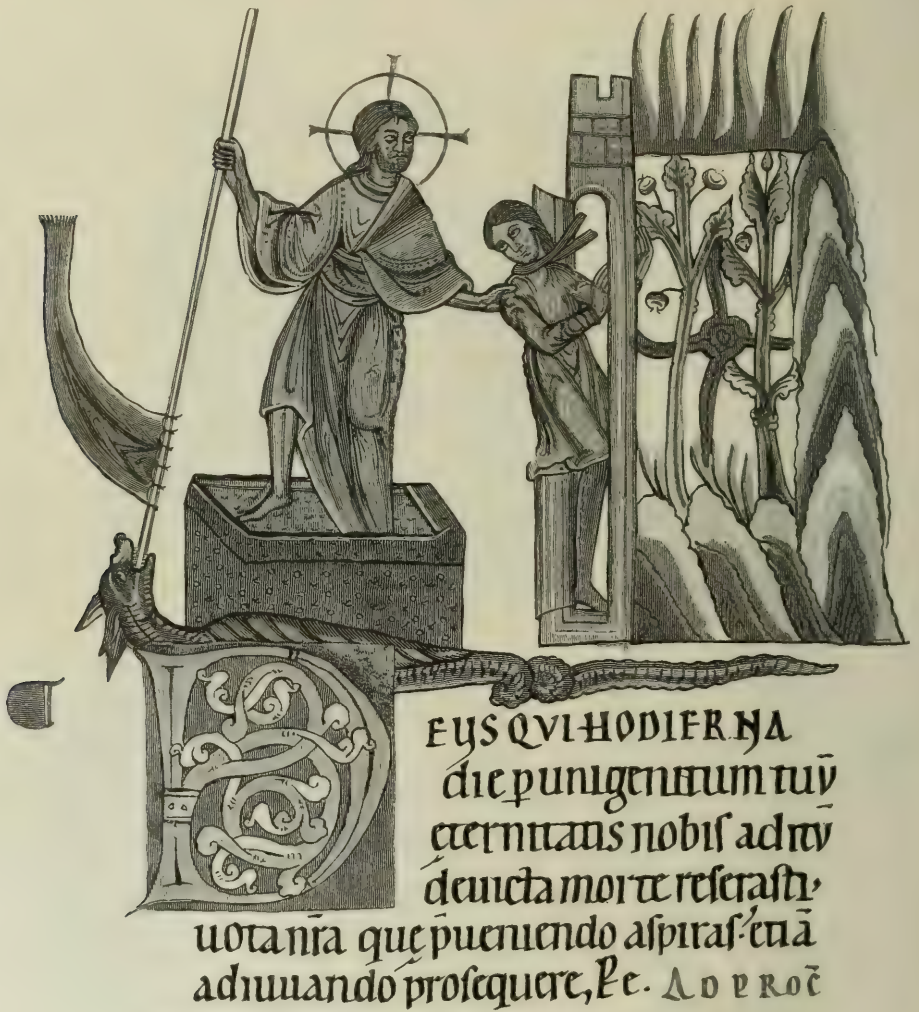 DEUS QVI HODIERNA
die p̲ unigenitum tuū
ęternitatis nobiſ aditū
deuicta morte reſeraſti,
uota nr̄a quę p̄ueniendo aſpiraſ· etiā
adiuuando proſequere, Pe. AD PROC̄